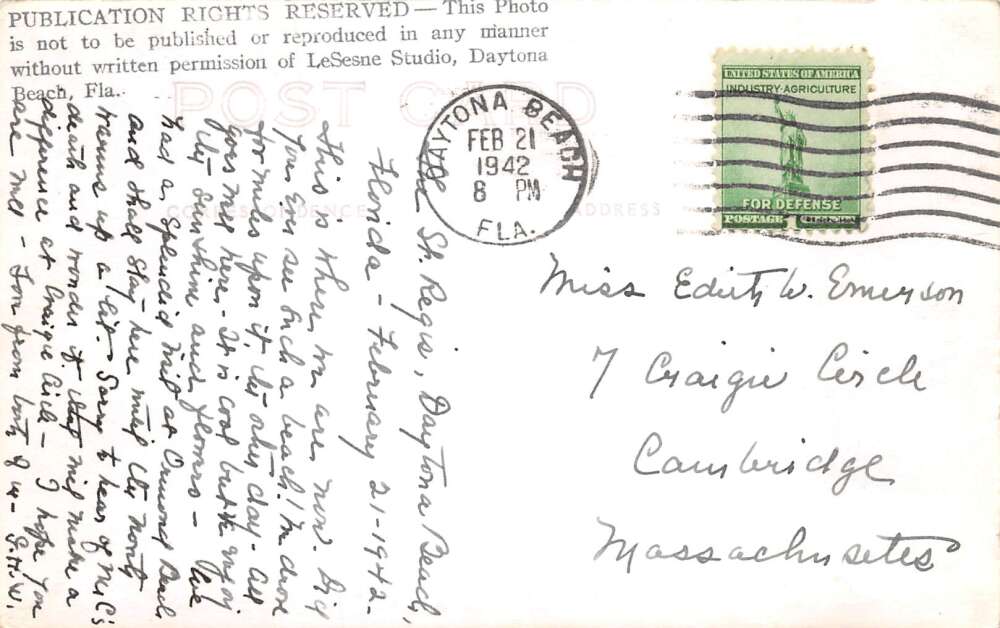 PUBLICATION RIGHTS RESERVED — This Photo
is not to be published or reproduced in any manner
without written permission of LeSesne Studio, Daytona
Beach, Fla.
POST CARD
CORRESPONDENCE
ADDRESS
DAYTONA BEACH
FEB 21
1942
8 PM
FLA.
UNITED STATES OF AMERICA
INDUSTRY·AGRICULTURE
FOR DEFENSE
POSTAGE 1
The St. Regis, Daytona Beach,
Florida - February 21-1942-
This is where we are now. Did
you ever see such a beach! We drove
for miles upon it, the other day - all
goes well here. It is cool but we enjoy
the sunshine and flowers - We
had a splendid visit at Ormond Beach
and shall stay here until the north
warms up a bit. Sorry to hear of Mr C's
death and wonder if that will make a
difference at Craigie Circle - I hope you
are well - Love from both of us - G.H.W.
Miss Edith W. Emerson
7 Craigie Circle
Cambridge
Massachusetts